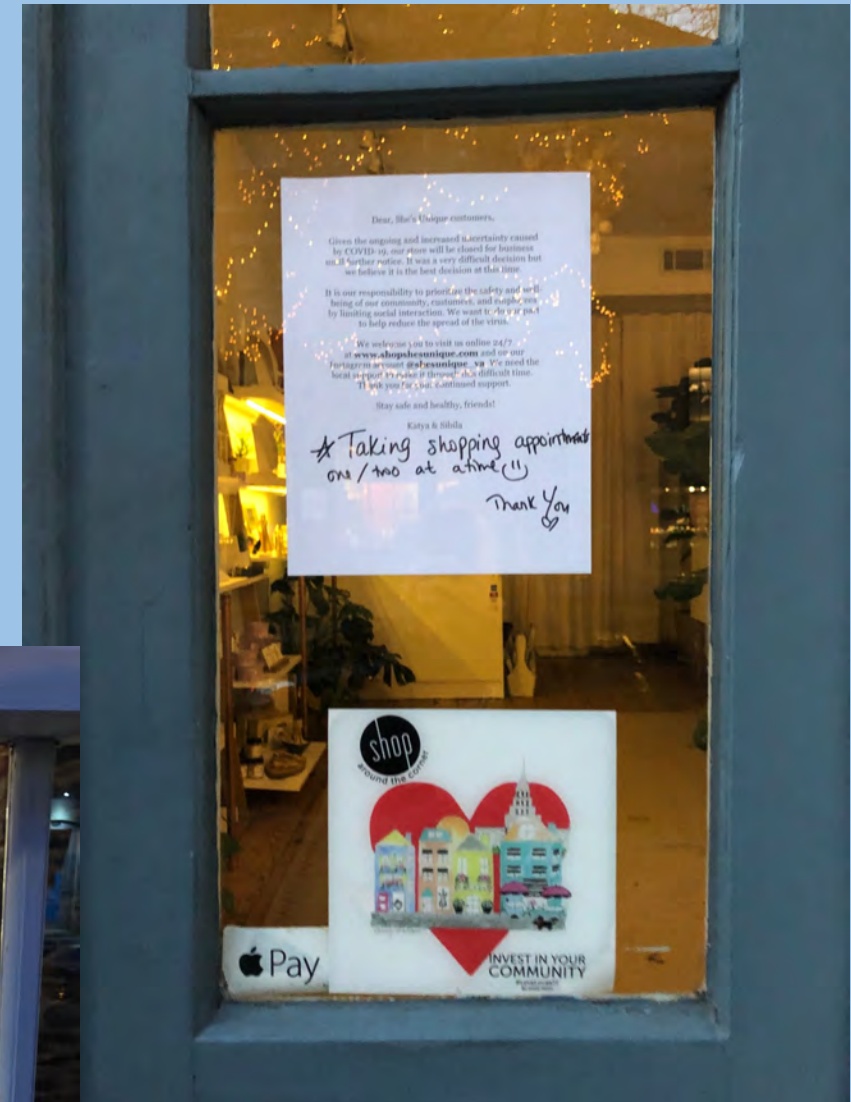 Dear, She's Unique customers,
Given the ongoing and increased uncertainty caused
by COVID-19, our store will be closed for business
until further notice. It was a very difficult decision but
we believe it is the best decision at this time.
It is our responsibility to prioritize the safety and well
being of our community, customers, and employees
by limiting social interaction. We want to do our part
to help reduce the spread of the virus.
We welcome you to visit us online 24/7
at www.shopshesunique.com and on our
Instagram account @shesunique_va We need the
local support to make it through this difficult time.
Thank you for your continued support.
Stay safe and healthy, friends!
Katya & Sibila
* Taking shopping appointments
one/two at a time
Thank You
shop
around the corner
Pay
INVEST IN YOUR
COMMUNITY